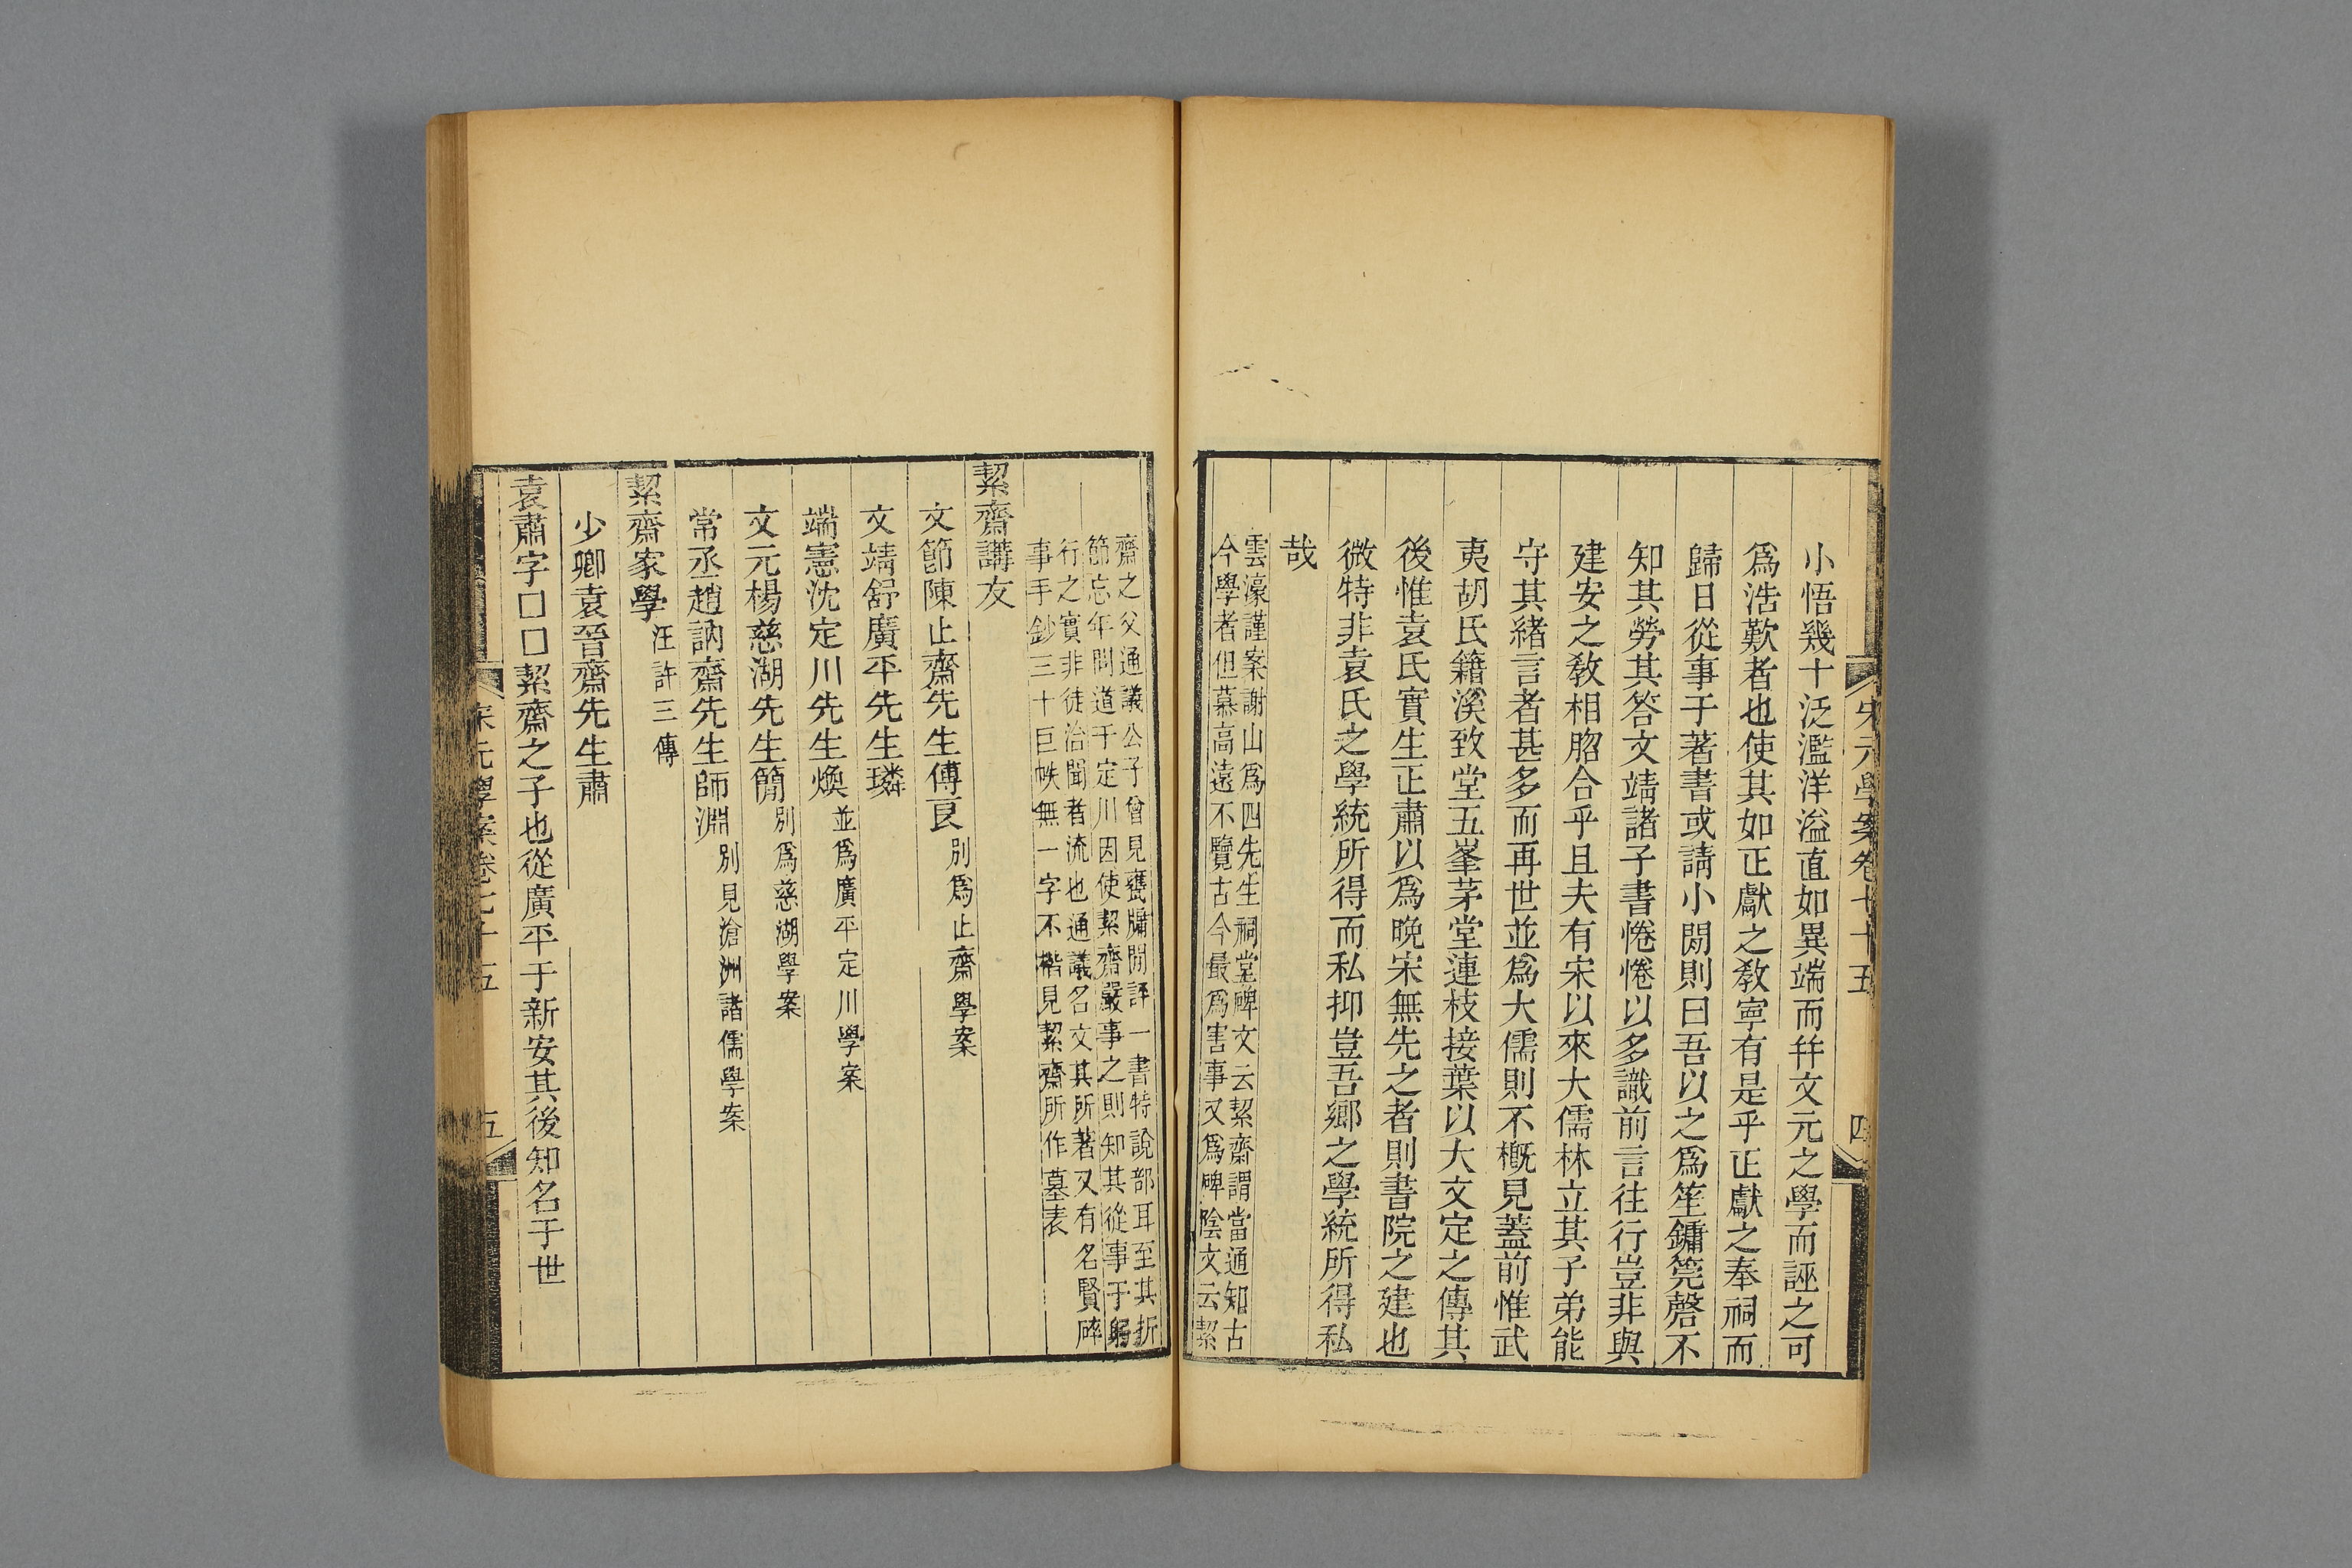 宋元學案卷七十五
四
小悟幾十泛濫洋溢直如異端而并文元之學而誣之可
爲浩歎者也使其如正獻之敎寧有是乎正獻之奉祠而
歸日從事于著書或請小閒則曰吾以之爲笙鏞筦磬不
知其勞其答文靖諸子書惓惓以多識前言往行豈非與
建安之敎相脗合乎且夫有宋以來大儒林立其子弟能
守其緒言者甚多而再世並爲大儒則不概見蓋前惟武
夷胡氏籍溪致堂五峯茅堂連枝接葉以大文定之傳其
後惟袁氏實生正肅以爲晩宋無先之者則書院之建也
微特非袁氏之學統所得而私抑豈吾鄉之學統所得私
哉
雲濠謹案謝山爲四先生祠堂碑文云絜齋謂當通知古
今學者但慕高遠不覽古今最爲害事又爲碑陰文云絜
齋之父通議公子曾見甕牖閒評一書特說部耳至其折
節忘年問道于定川因使絜齋嚴事之則知其從事于躬
行之實非徒洽聞者流也通議名文其所著又有名賢碎
事手鈔三十巨帙無一字不楷見絜齋所作墓表
絜齋講友
文節陳止齋先生傅良別爲止齋學案
文靖舒廣平先生璘
端憲沈定川先生煥並爲廣平定川學案
文元楊慈湖先生簡別爲慈湖學案
常丞趙訥齋先生師淵別見滄洲諸儒學案
絜齋家學汪許三傳
少卿袁晉齋先生肅
袁肅字□□絜齋之子也從廣平于新安其後知名于世
宋元學案卷七十五
五